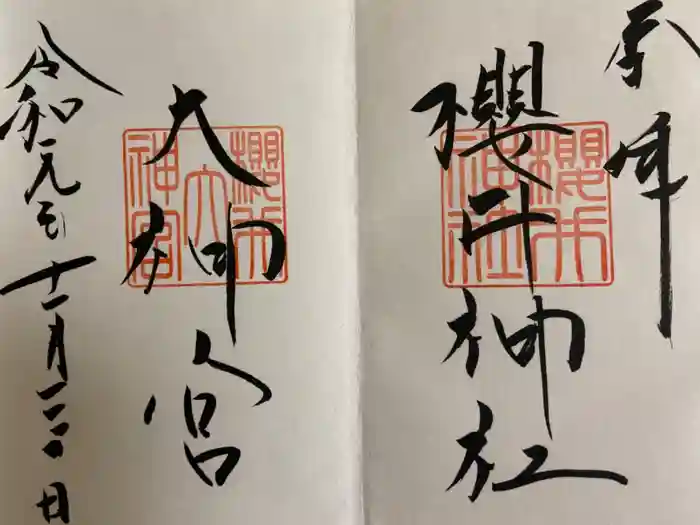 奉拝
櫻井神社
櫻井
神社
大神宮
櫻井
大
神宮
令和元年十一月三日